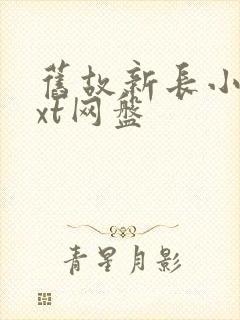 舊故新長小
xt网盘
青星月影